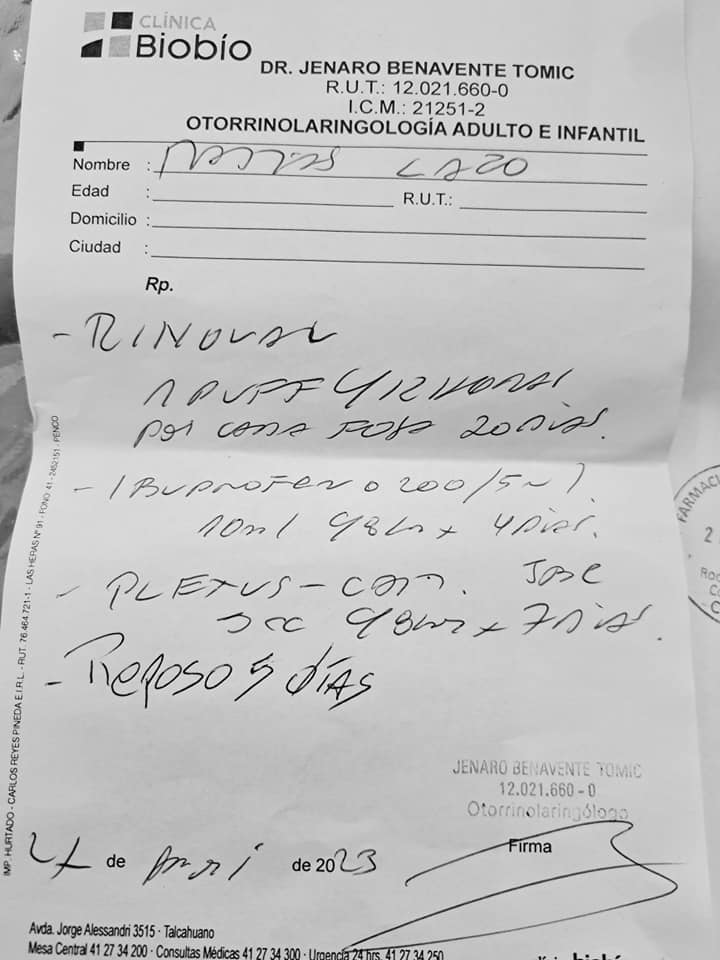 CLÍNICA
Biobío
DR. JENARO BENAVENTE TOMIC
R.U.T.: 12.021.660-0
I.C.M.: 21251-2
OTORRINOLARINGOLOGÍA ADULTO E INFANTIL
Nombre : LAZO
Edad :
R.U.T.:
Domicilio :
Ciudad :
Rp.
- RINOVAL
1 PUFF C/12 HORAS
POR CADA FOSA 20 DIAS.
- IBUPROFENO 200/5ml.
10ml c/8hr x 4 DIAS.
- PLETUS- JBE
c/8hr x 7 DIAS.
- Reposo 5 DÍAS
JENARO BENAVENTE TOMIC
12.021.660 - 0
Otorrinolaringólogo
Firma
de de 2023
IMP. HURTADO - CARLOS REYES PINEDA E.I.R.L. - RUT. 76.464.721-1 - LAS HERAS Nº 91 - FONO 41 - 2452151 - PENCO
Avda. Jorge Alessandri 3515 · Talcahuano
Mesa Central 41 27 34 200 · Consultas Médicas 41 27 34 300 · Urgencia 24 hrs. 41 27 34 250
biobío